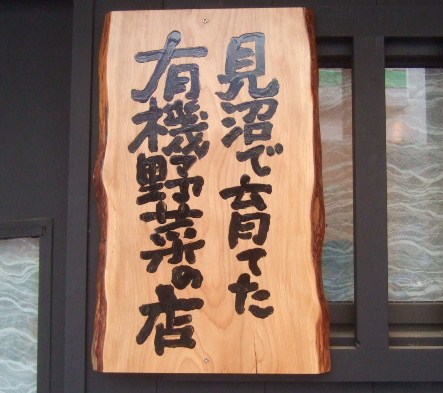 見沼で育てた
有機野菜の店